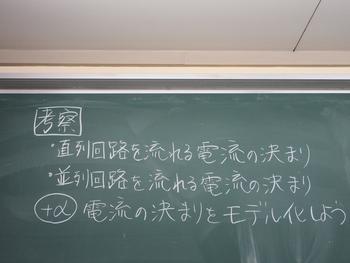 考察
・直列回路を流れる電流の決まり
・並列回路を流れる電流の決まり
+α 電流の決まりをモデル化しよう